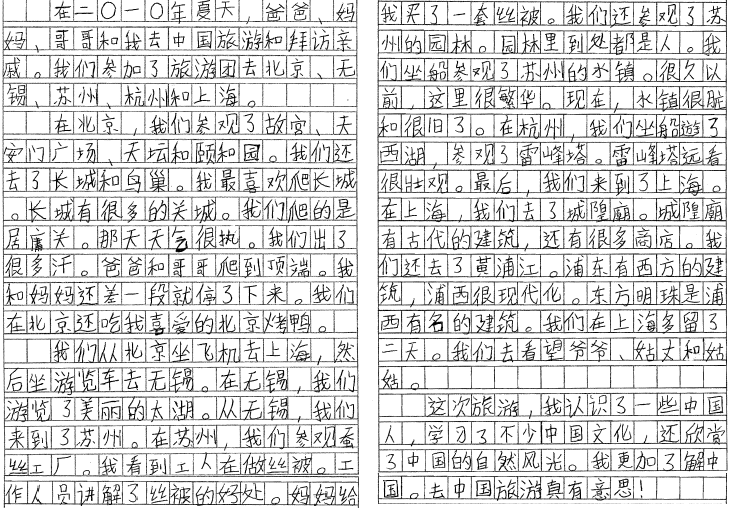 在二〇一〇年夏天，爸爸、妈
妈、哥哥和我去中国旅游和拜访亲
戚。我们参加了旅游团去北京、无
锡、苏州、杭州和上海。
在北京，我们参观了故宫、天
安门广场、天坛和颐和园。我们还
去了长城和鸟巢。我最喜欢爬长城
。长城有很多的关城。我们爬的是
居庸关。那天天气很热。我们出了
很多汗。爸爸和哥哥爬到顶端。我
和妈妈还差一段就停了下来。我们
在北京还吃我喜爱的北京烤鸭。
我们从北京坐飞机去上海，然
后坐游览车去无锡。在无锡，我们
游览了美丽的太湖。从无锡，我们
来到了苏州。在苏州，我们参观蚕
丝工厂。我看到工人在做丝被。工
作人员讲解了丝被的好处。妈妈给
我买了一套丝被。我们还参观了苏
州的园林。园林里到处都是人。我
们坐船参观了苏州的水镇。很久以
前，这里很繁华。现在，水镇很脏
和很旧了。在杭州，我们坐船遊了
西湖，参观了雷峰塔。雷峰塔远看
很壮观。最后，我们来到了上海。
在上海，我们去了城隍庙。城隍庙
有古代的建筑，还有很多商店。我
们还去了黄浦江。浦东有西方的建
筑，浦西很现代化。东方明珠是浦
西有名的建筑。我们在上海多留了
二天。我们去看望爷爷、姑丈和姑
姑。
这次旅游，我认识了一些中国
人，学习了不少中国文化，还欣赏
了中国的自然风光。我更加了解中
国。去中国旅游真有意思！